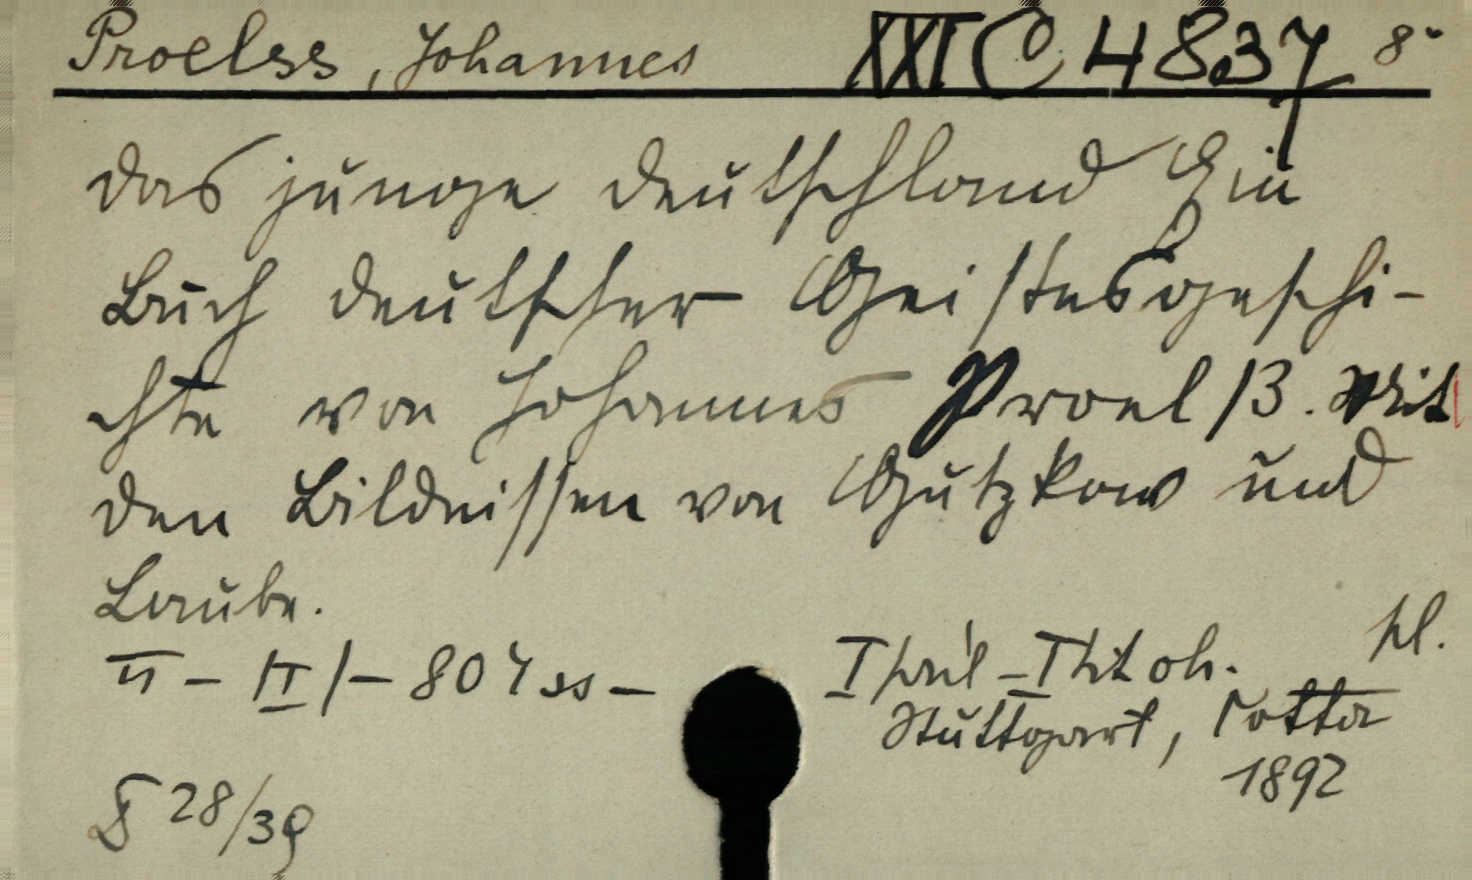 Proelss, Johannes XXI C 4837 8°
Das junge Deutschland Ein
Buch deutscher Geistesgeschi-
chte von Johannes Proelß. Mit
den Bildnissen von Gutzkow und
Laube.
II – 804 ss –
Stuttgart, Cotta
1892
28/39